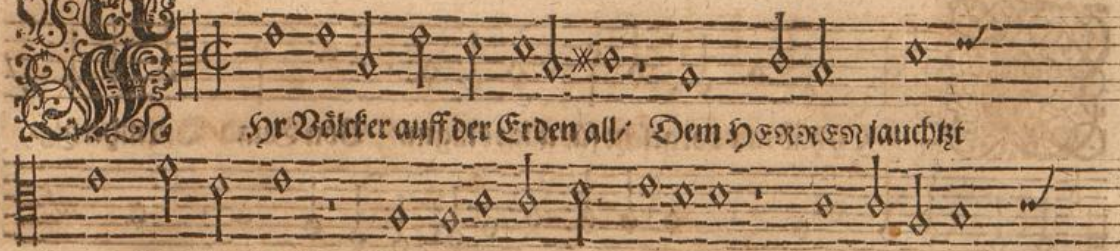 Ihr Völcker auff der Erden all/ Dem HERREN jauchtzt